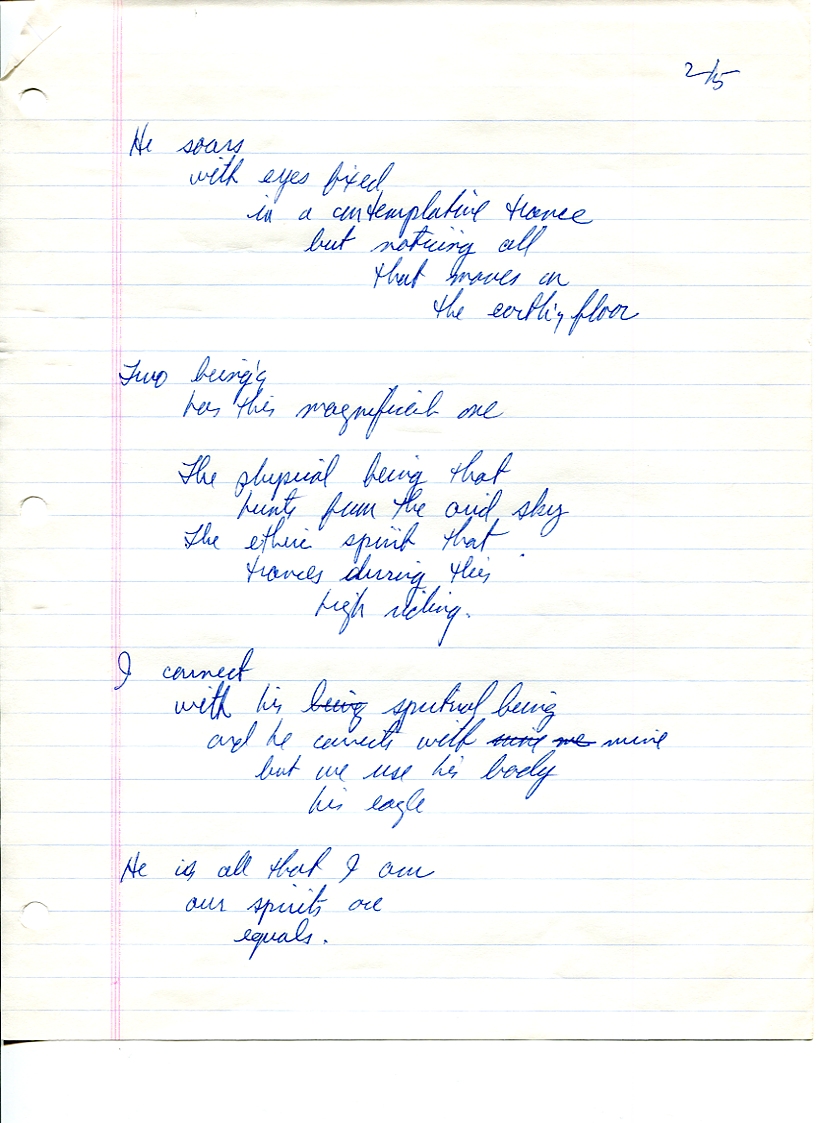 2/5
He soars
with eyes fixed
in a contemplative trance
but noticing all
that moves on
the earthly floor
Two being's
has this magnificent one
The physical being that
hunts from the arid sky
The etheric spirit that
trances durring this
high riding.
I connect
with his being spiritual being
and he connects with mine me mine
but we use his body
his eagle
He is all that I am
our spirits are
equals.